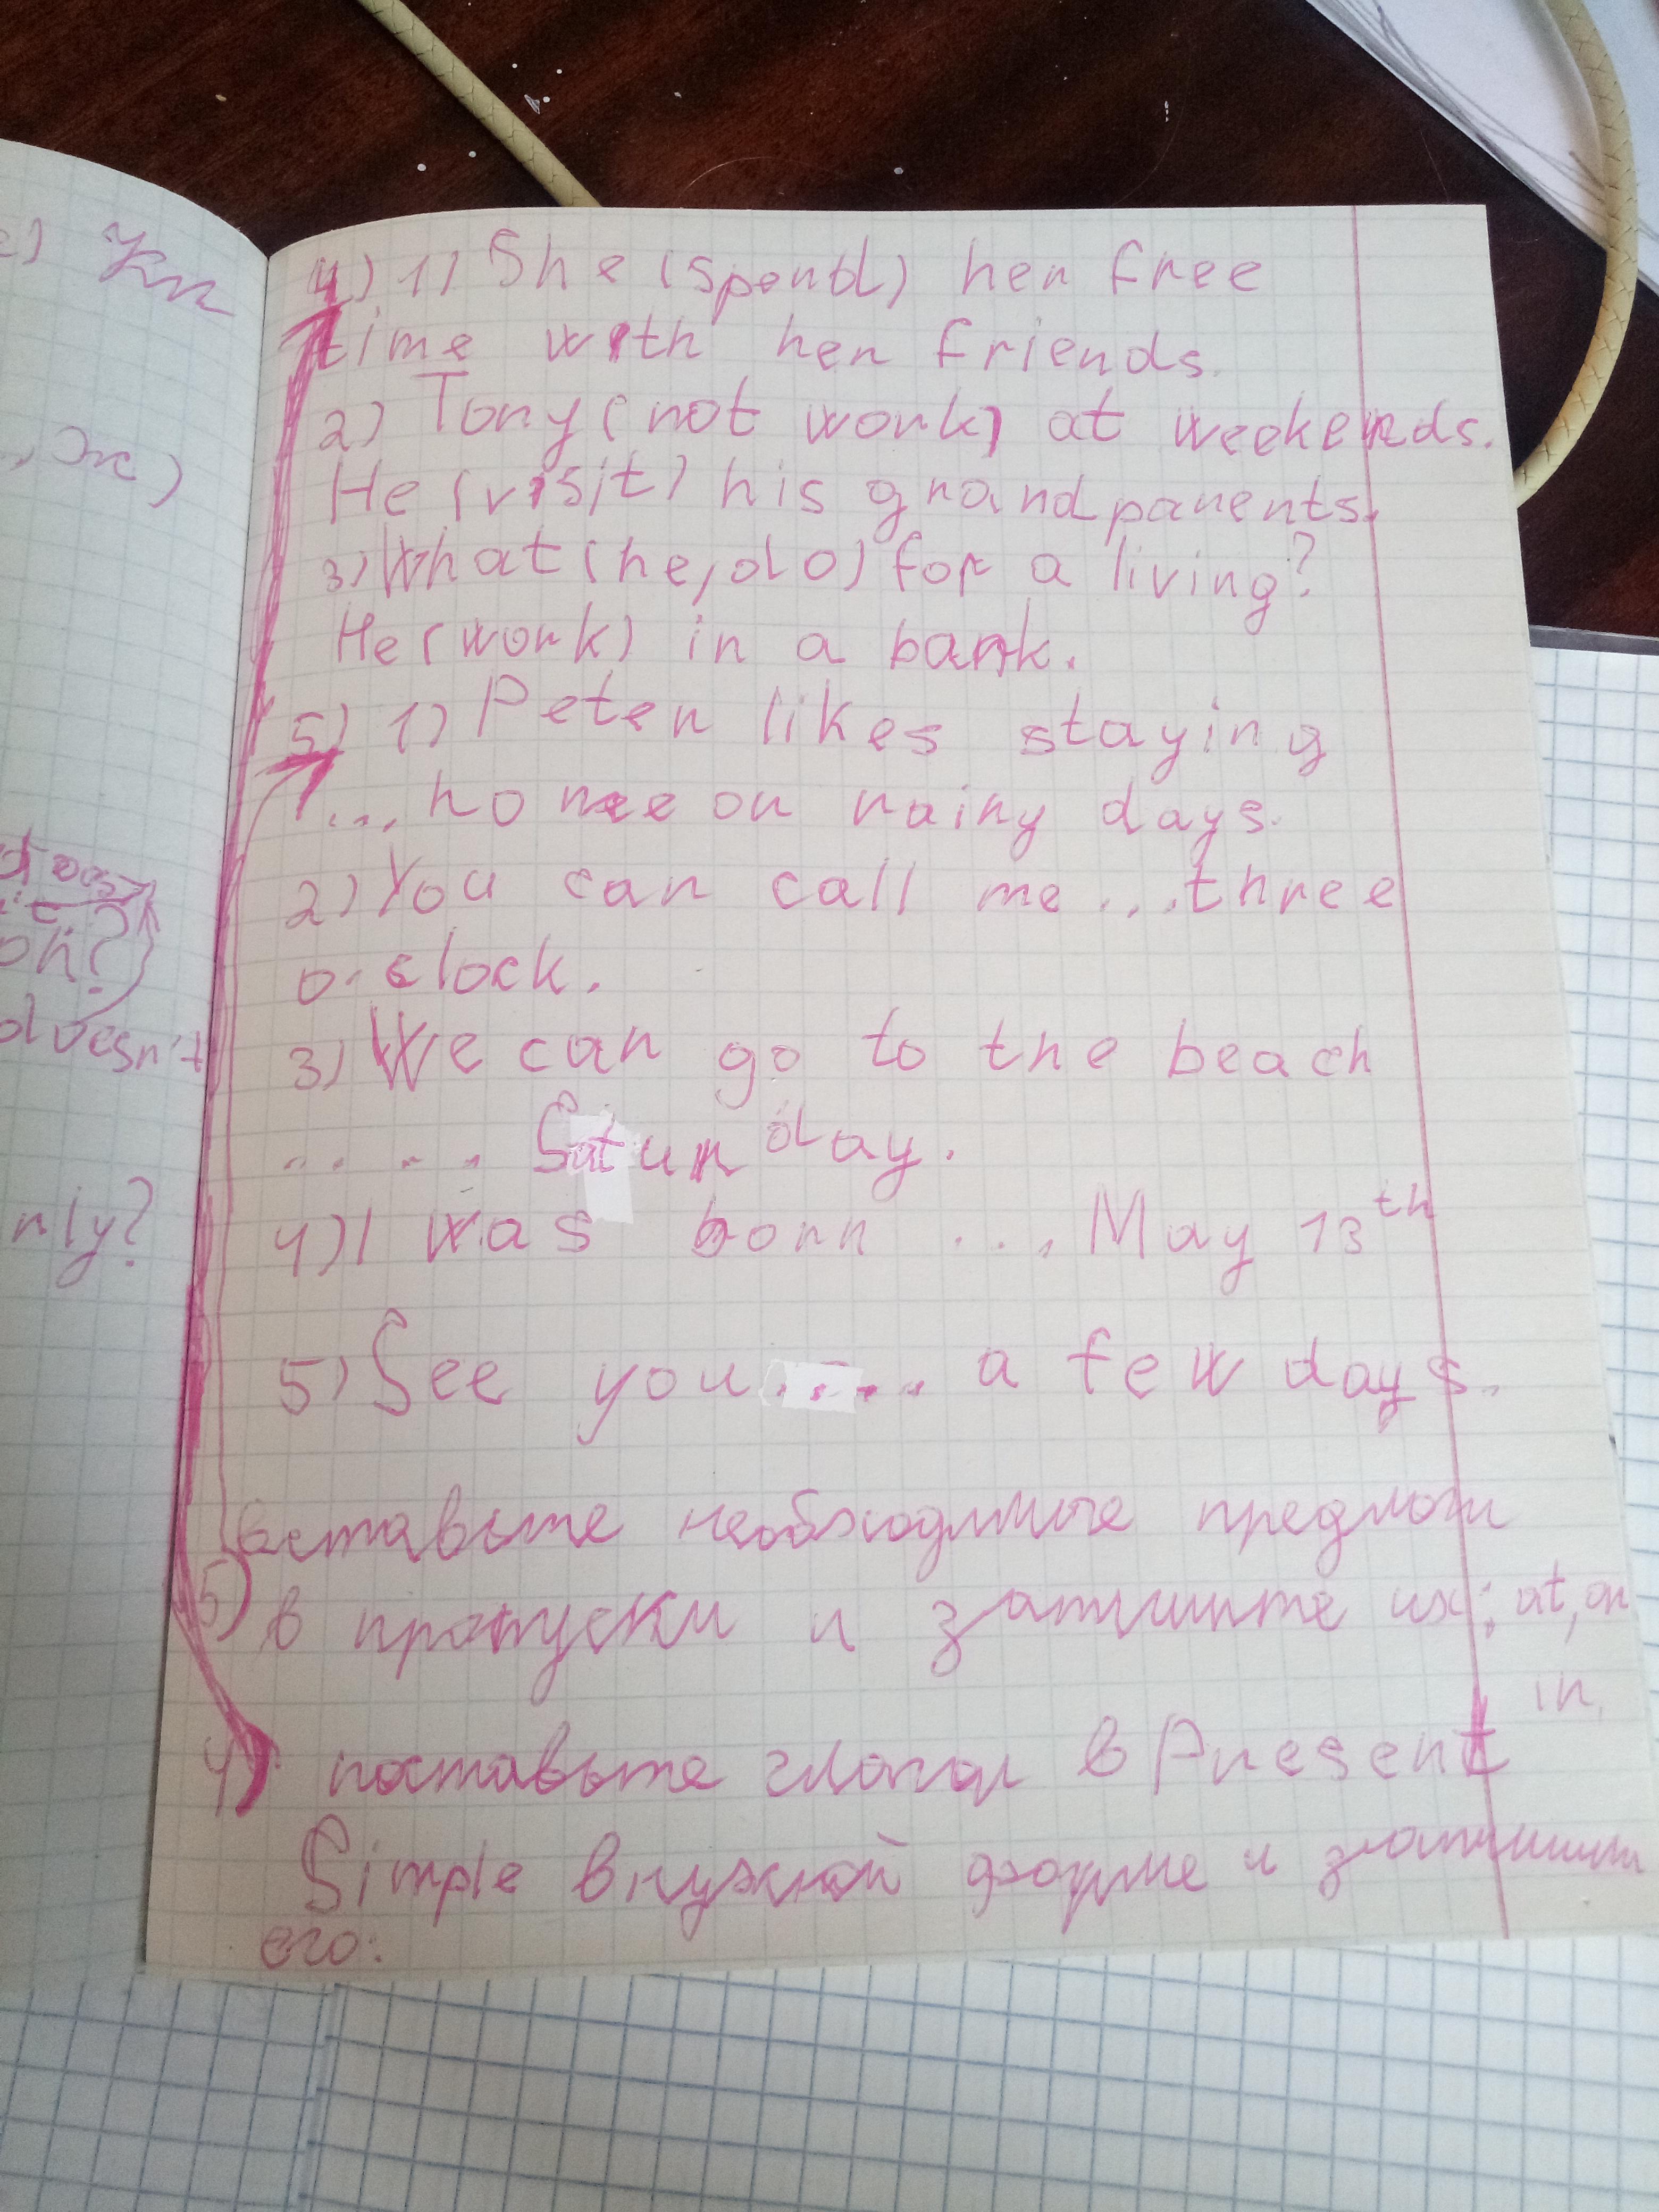 4) 1) She (spend) her free
time with her friends.
2) Tony (not work) at weekends.
He (visit) his grandparents.
3) What (he, do) for a living?
He (work) in a bank.
5) 1) Peter likes staying
... home on rainy days.
2) You can call me ... three
o'clock.
3) We can go to the beach
..... Saturday.
4) I was born .... May 13th
5) See you ..... a few days.
вставьте необходимые предлоги
5) в пропуски и запишите их: at, on
in.
4) поставьте глагол в Present
Simple в нужной форме и запишите
его:
oh?
doesn't
nly?